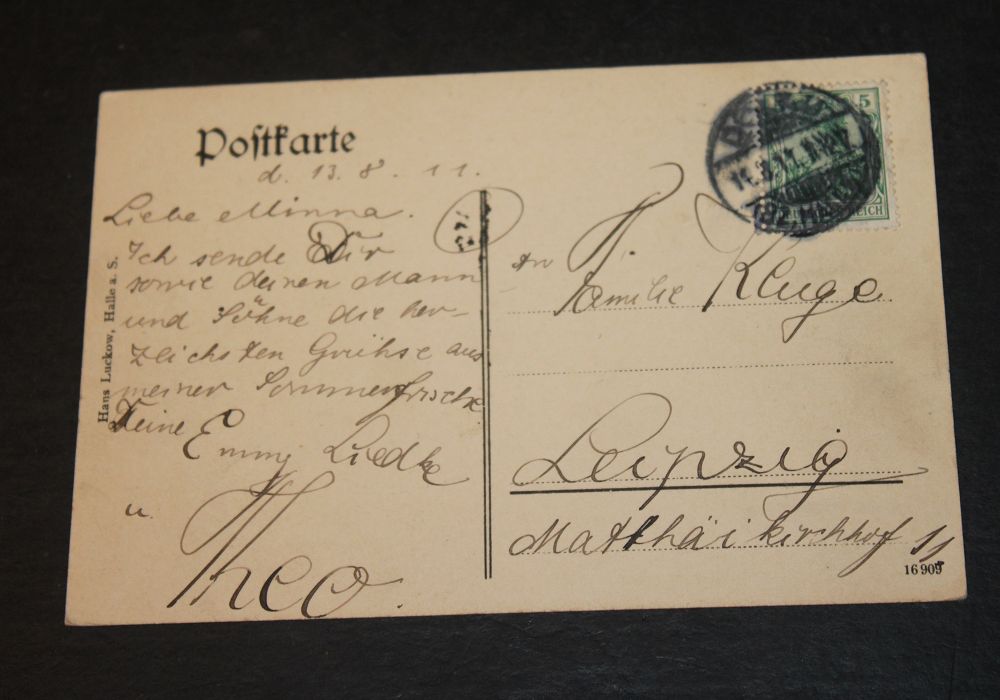 Postkarte
d. 13. 8. 11.
Liebe Minna.
Ich sende Dir
sowie deinen Mann
und Söhne die her-
zlichsten Grühse aus
meiner Sommerfrische
Deine Emmy Liedke
u. Theo.
Hans Luckow, Halle a. S.
An
Familie Kluge.
Leipzig
Matthäikirchhof 11
16909
5
REICH